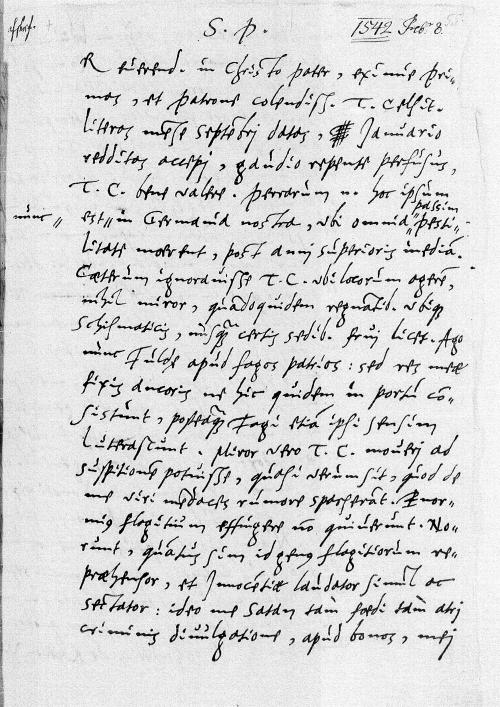 S. P. 1542 Feb. 8.
Reuerend. in Christo pater, eximie pri-
mas, et patrone colendiss. T. Celsit.
literas mense Septembri datas, Januario
redditas accepi, gaudio repente perfusus,
T. C. bene valere. perrarum n. hoc ipsum
nunc " est " in Germania nostra, vbi omnia passim " pesti-
litate moerent, post anni superioris inedia.
Cæterum ignorauisse T. C. vbi locorum agerē,
nihil miror, quādoquidem regnātib. vbiq
schismaticis, nusq̃ certis sedib. frui licet. Ago
nunc Fuldę apud fagos patrios: sed res meæ
fixis ancoris ne hic quidem in portu cō-
sistunt, posteaq̃ Fagi etiā ipsi sensim
luterascunt. Miror vero T. C. moueri ad
suspitionē potuisse, quasi verum sit, quod de
me viri mēdaces rumore sparserāt. Enor-
mis flagitium effugere nō quiuerunt. No-
runt, quātus sim id genus flagitiorum re-
præhensor, et Innocētiæ laudator simul ac
sectator: ideo me Satan tam foedi tam atri
criminis diuulgatione, apud bonos, mei